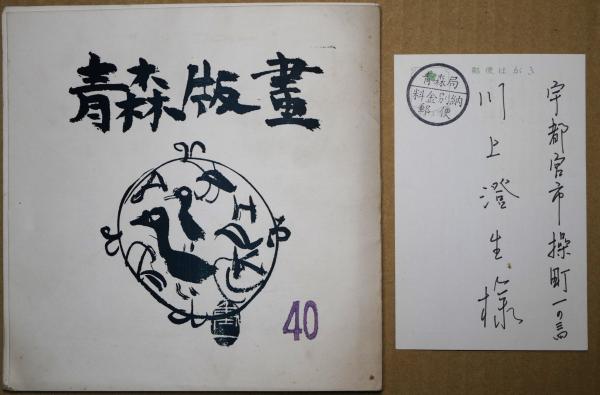 青森版畫
40
郵便はがき
青森局
料金別納
郵便
宇都宮市操町一の
川上澄生様